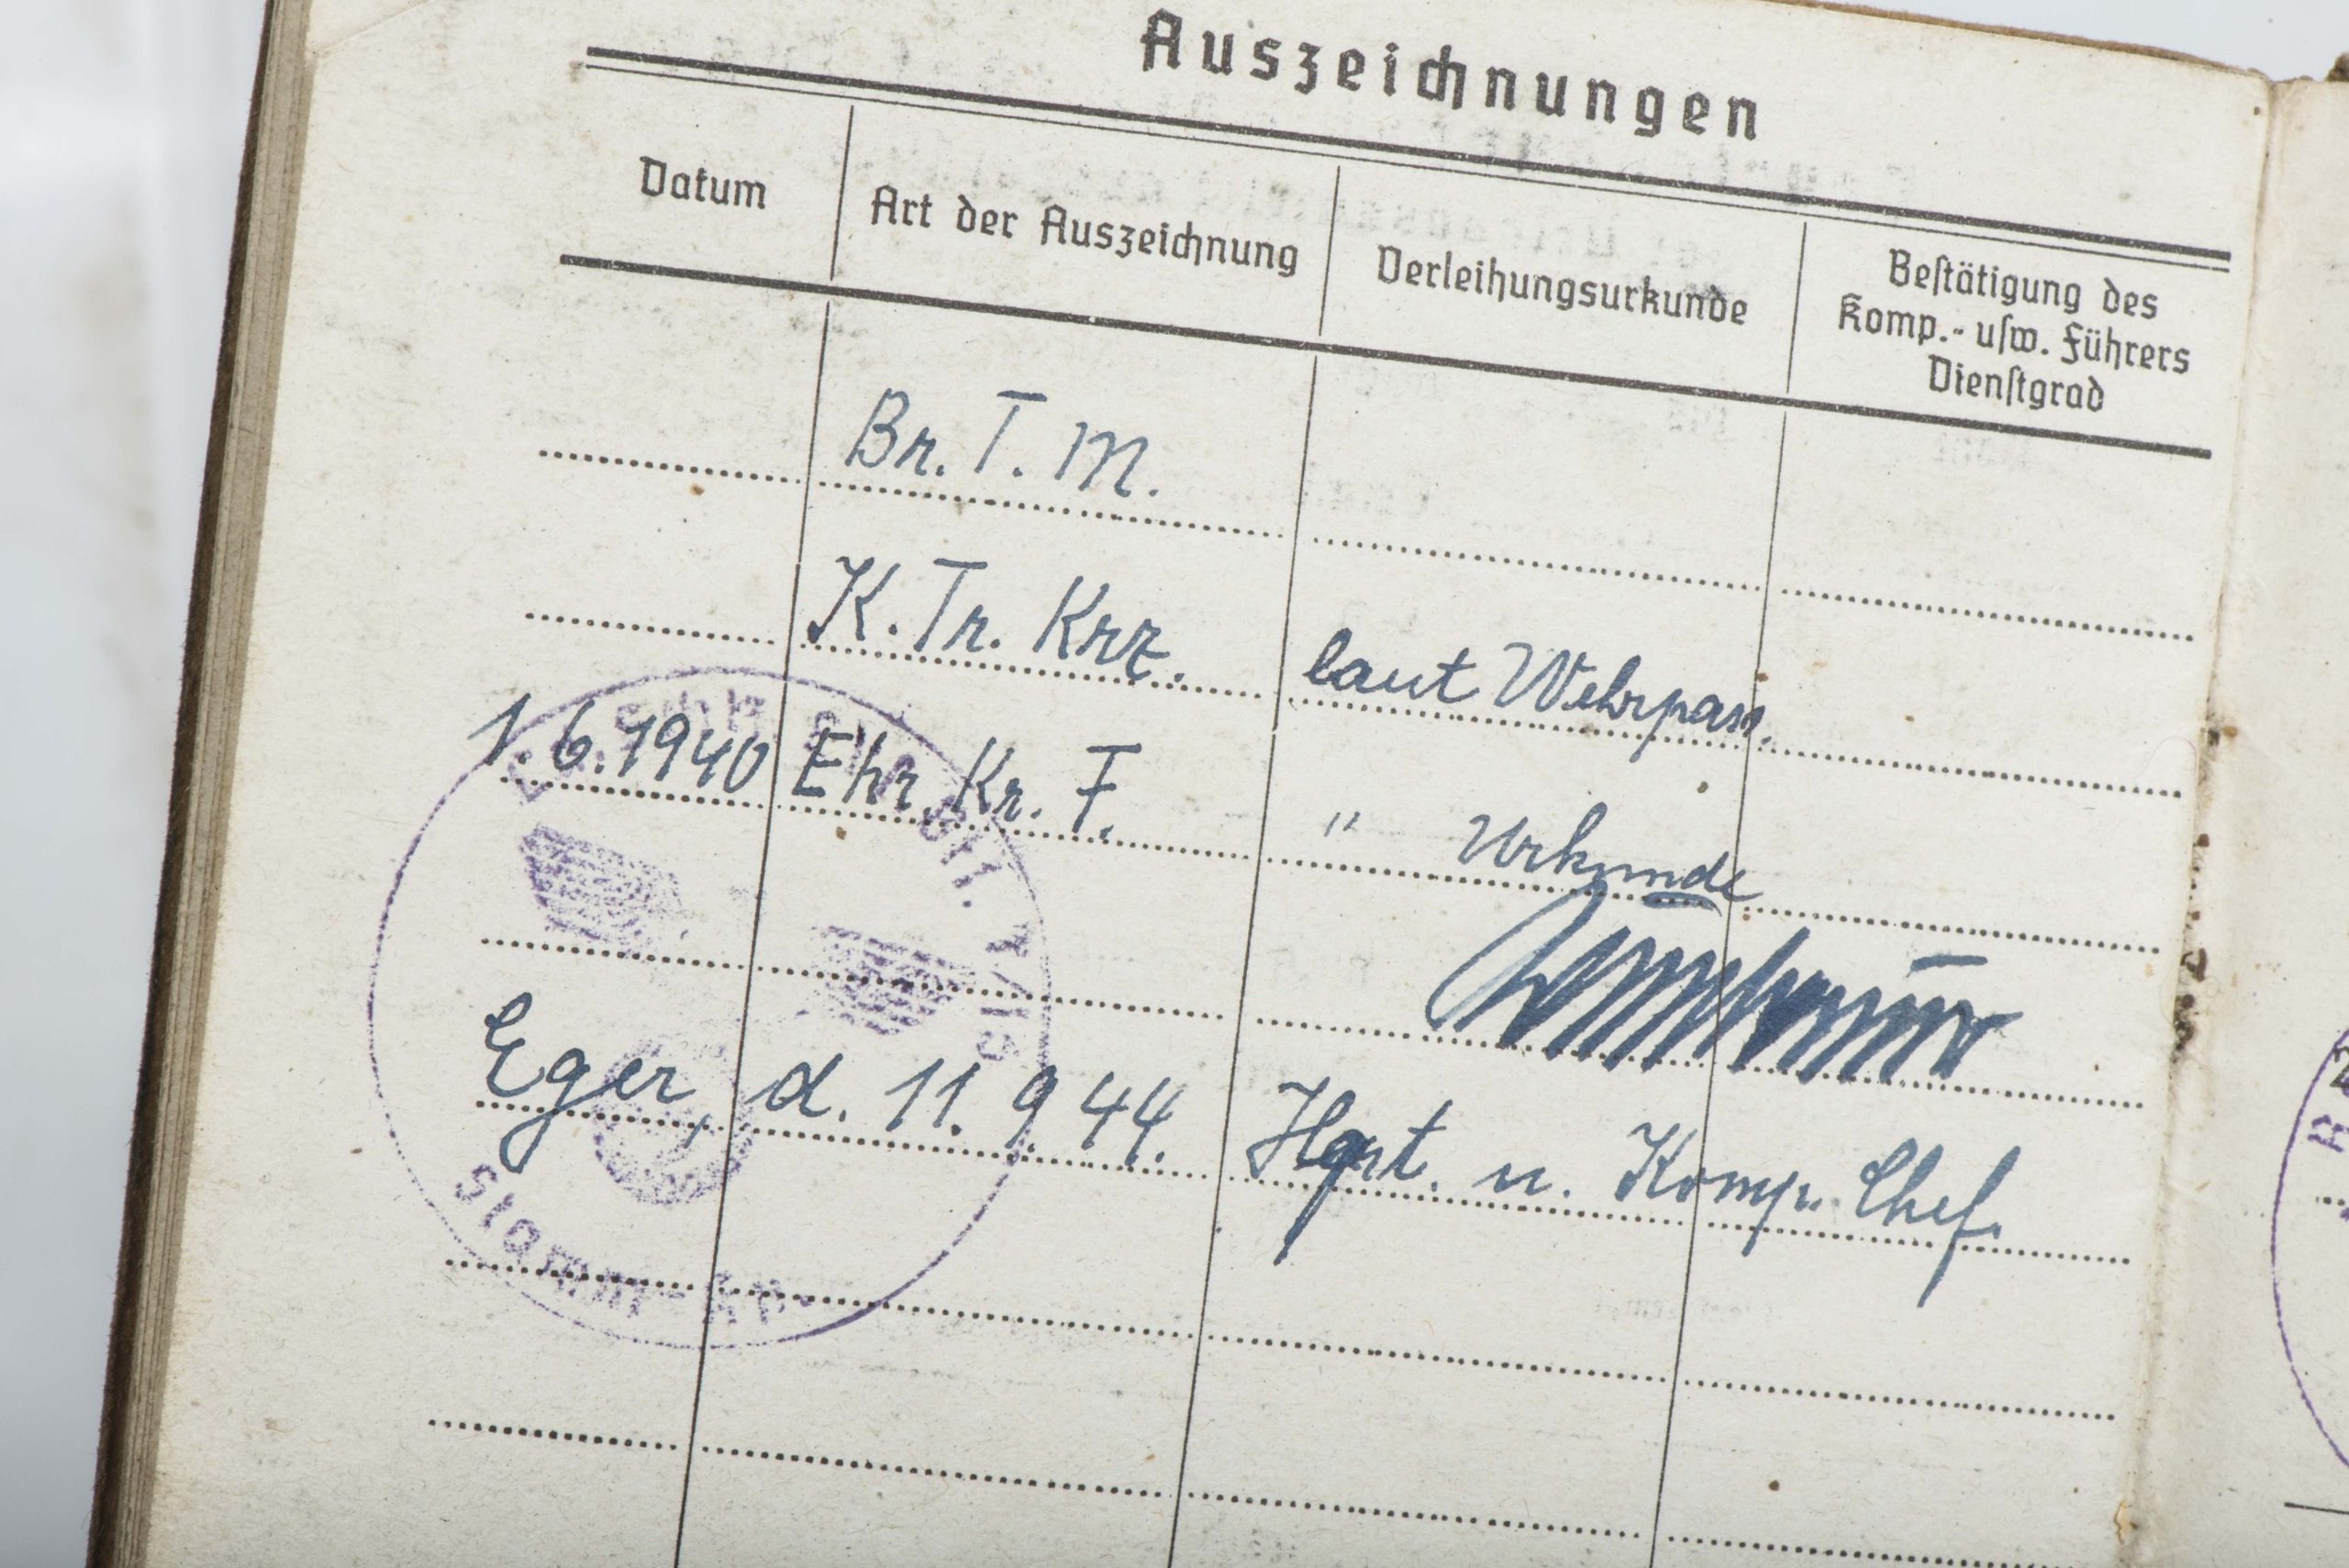 Auszeichnungen
Datum Art der Auszeichnung Verleihungsurkunde Bestätigung des Komp.- usw. Führers Dienstgrad
Br. T. M.
K. Tr. Krz. laut Wehrpass.
1.6.1940 Ehr. Kr. F. " Urkunde
Eger, d. 11.9.44. Hpt. u. Komp. Chef.
Stamm-Kp.